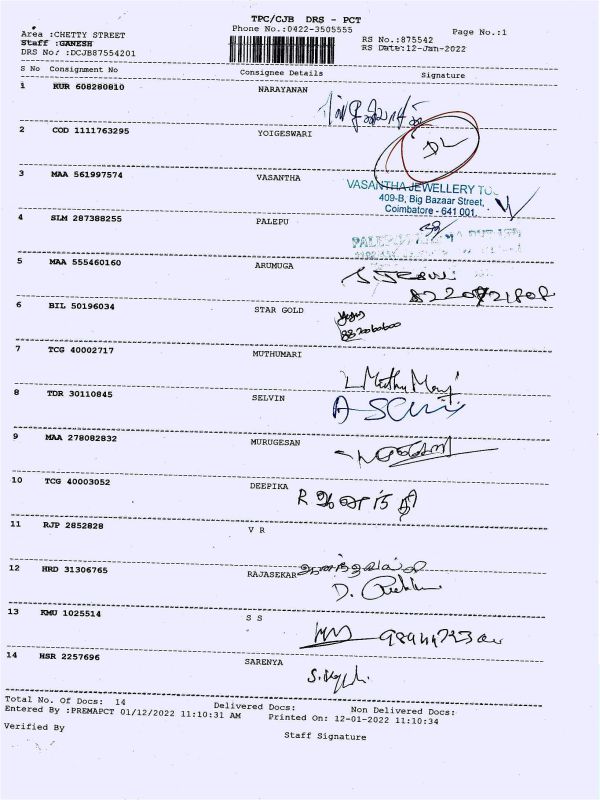 TPC/CJB DRS - PCT
Phone No.:0422-3505555
Page No.:1
Area :CHETTY STREET
Staff :GANESH
DRS No/ :DCJB87554201
RS No.:875542
RS Date:12-Jan-2022
S No Consignment No Consignee Details Signature
1 KUR 608280810 NARAYANAN
2 COD 1111763295 YOIGESWARI
DL
3 MAA 561997574 VASANTHA
VASANTHA JEWELLERY
409-B, Big Bazaar Street,
Coimbatore - 641 001.
4 SLM 287388255 PALEPU
5 MAA 555460160 ARUMUGA
6 BIL 50196034 STAR GOLD
7 TCG 40002717 MUTHUMARI
8 TDR 30110845 SELVIN
9 MAA 278082832 MURUGESAN
10 TCG 40003052 DEEPIKA
11 RJP 2852828 V R
12 HRD 31306765 RAJASEKAR
13 KMU 1025514 S S
14 HSR 2257696 SARENYA
Total No. Of Docs: 14 Delivered Docs: Non Delivered Docs:
Entered By :PREMAPCT 01/12/2022 11:10:31 AM Printed On: 12-01-2022 11:10:34
Verified By
Staff Signature